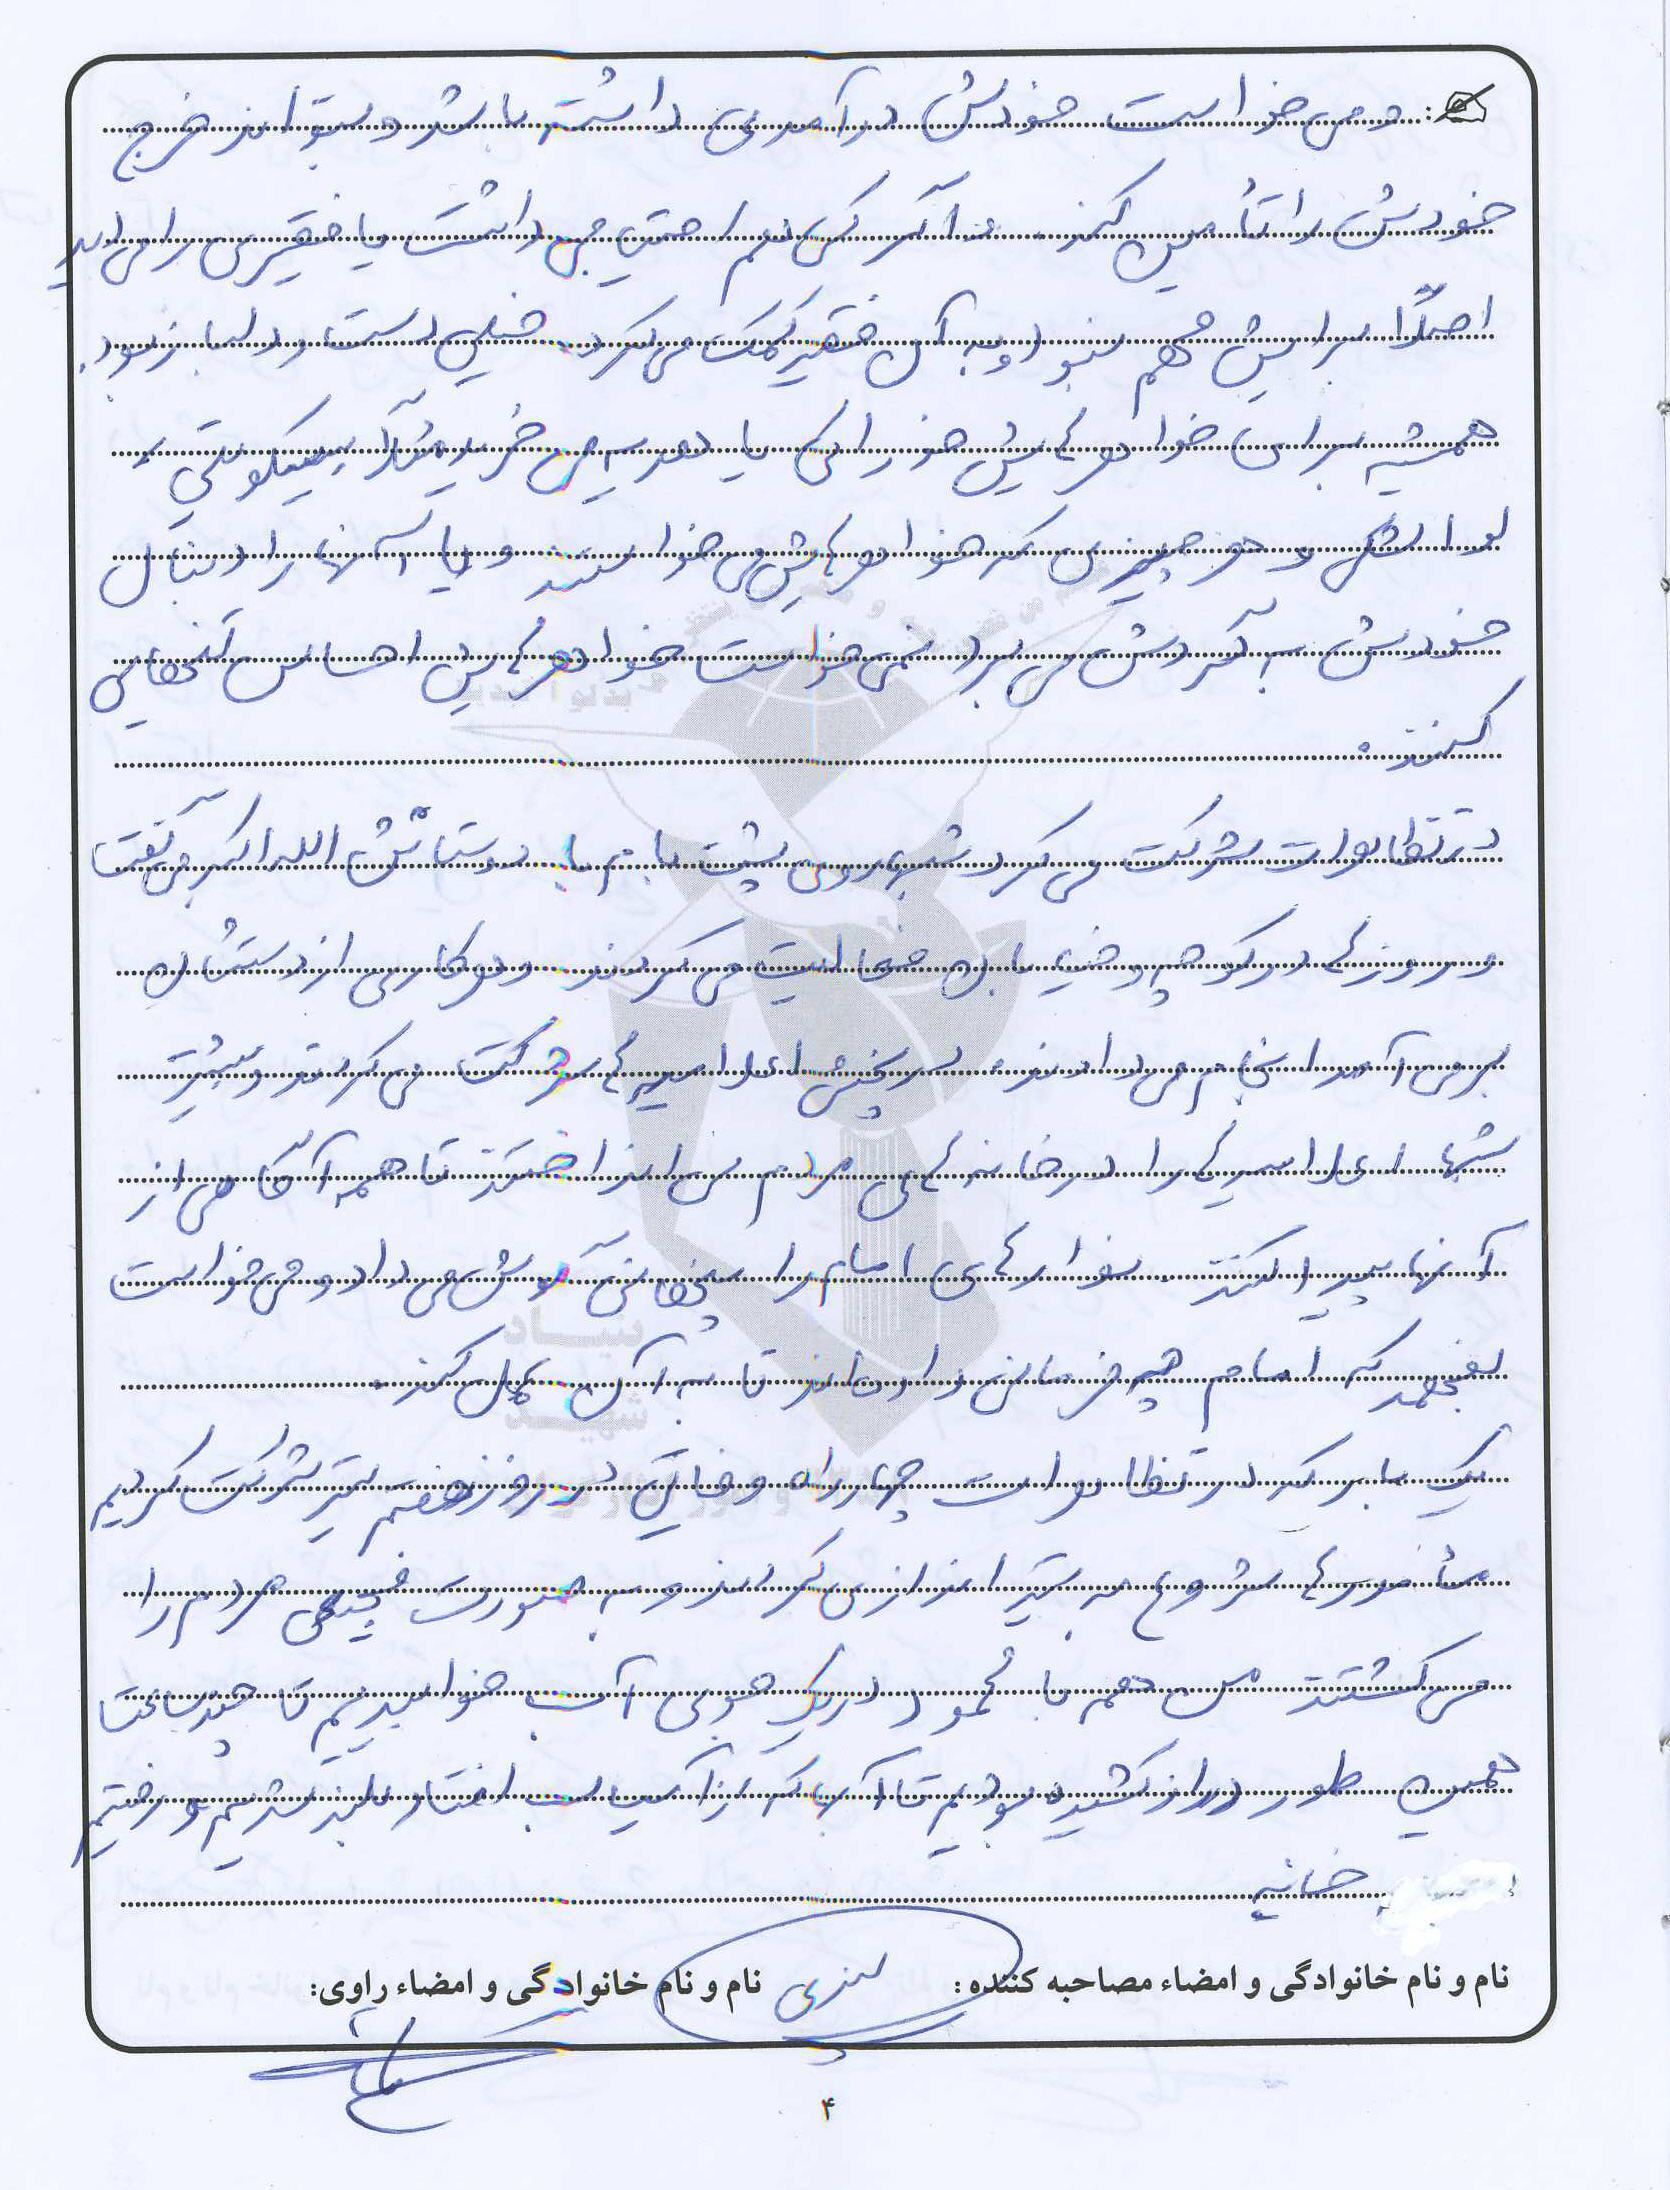 و می خواست خودش درآمدی داشته باشد و بتواند خرج
خودش را تأمین کند. و اگر کسی هم احتیاجی داشت یا فقیری را می دید
اصلاً برایش مهم نبود و به آن فقیر کمک می کرد. خیلی دست و دلباز بود.
همیشه برای خواهرهایش خوراکی یا هدیه می خرید مثلاً بیسکویتی،
لواشکی و هر چیزی که خواهرهایش می خواستند و یا آنها را دنبال
خودش به گردش می برد نمی خواست خواهرهایش احساس تنهایی
کنند.
در تظاهرات شرکت می کرد شبها روی پشت بام با دوستانش الله اکبر می گفتند
و روزها در کوچه و خیابان فعالیت می کردند و هر کاری از دستشان
بر می آمد انجام می دادند. در پخش اعلامیه ها شرکت می کردند و بیشتر
شبها اعلامیه ها را در خانه های مردم می انداختند تا همه آگاهی از
آنها پیدا کنند. نوارهای امام را پنهانی گوش می داد و می خواست
بفهمد که امام چه فرمانی داده اند تا به آن عمل کند.
یک بار که در تظاهرات چهارراه وفائی در روز هفتم تیر شرکت کردیم
مأمورها شروع به تیراندازی کردند و به صورت فجیعی مردم را
می کشتند من هم با محمود در یک جوی آب خوابیدیم تا چند ساعت
همین طور دراز کشیده بودیم تا آنها که از آسیاب افتاد بلند شدیم و رفتیم
خانه
نام و نام خانوادگی و امضاء مصاحبه کننده: نام و نام خانوادگی و امضاء راوی:
بنیاد
شهید
۴